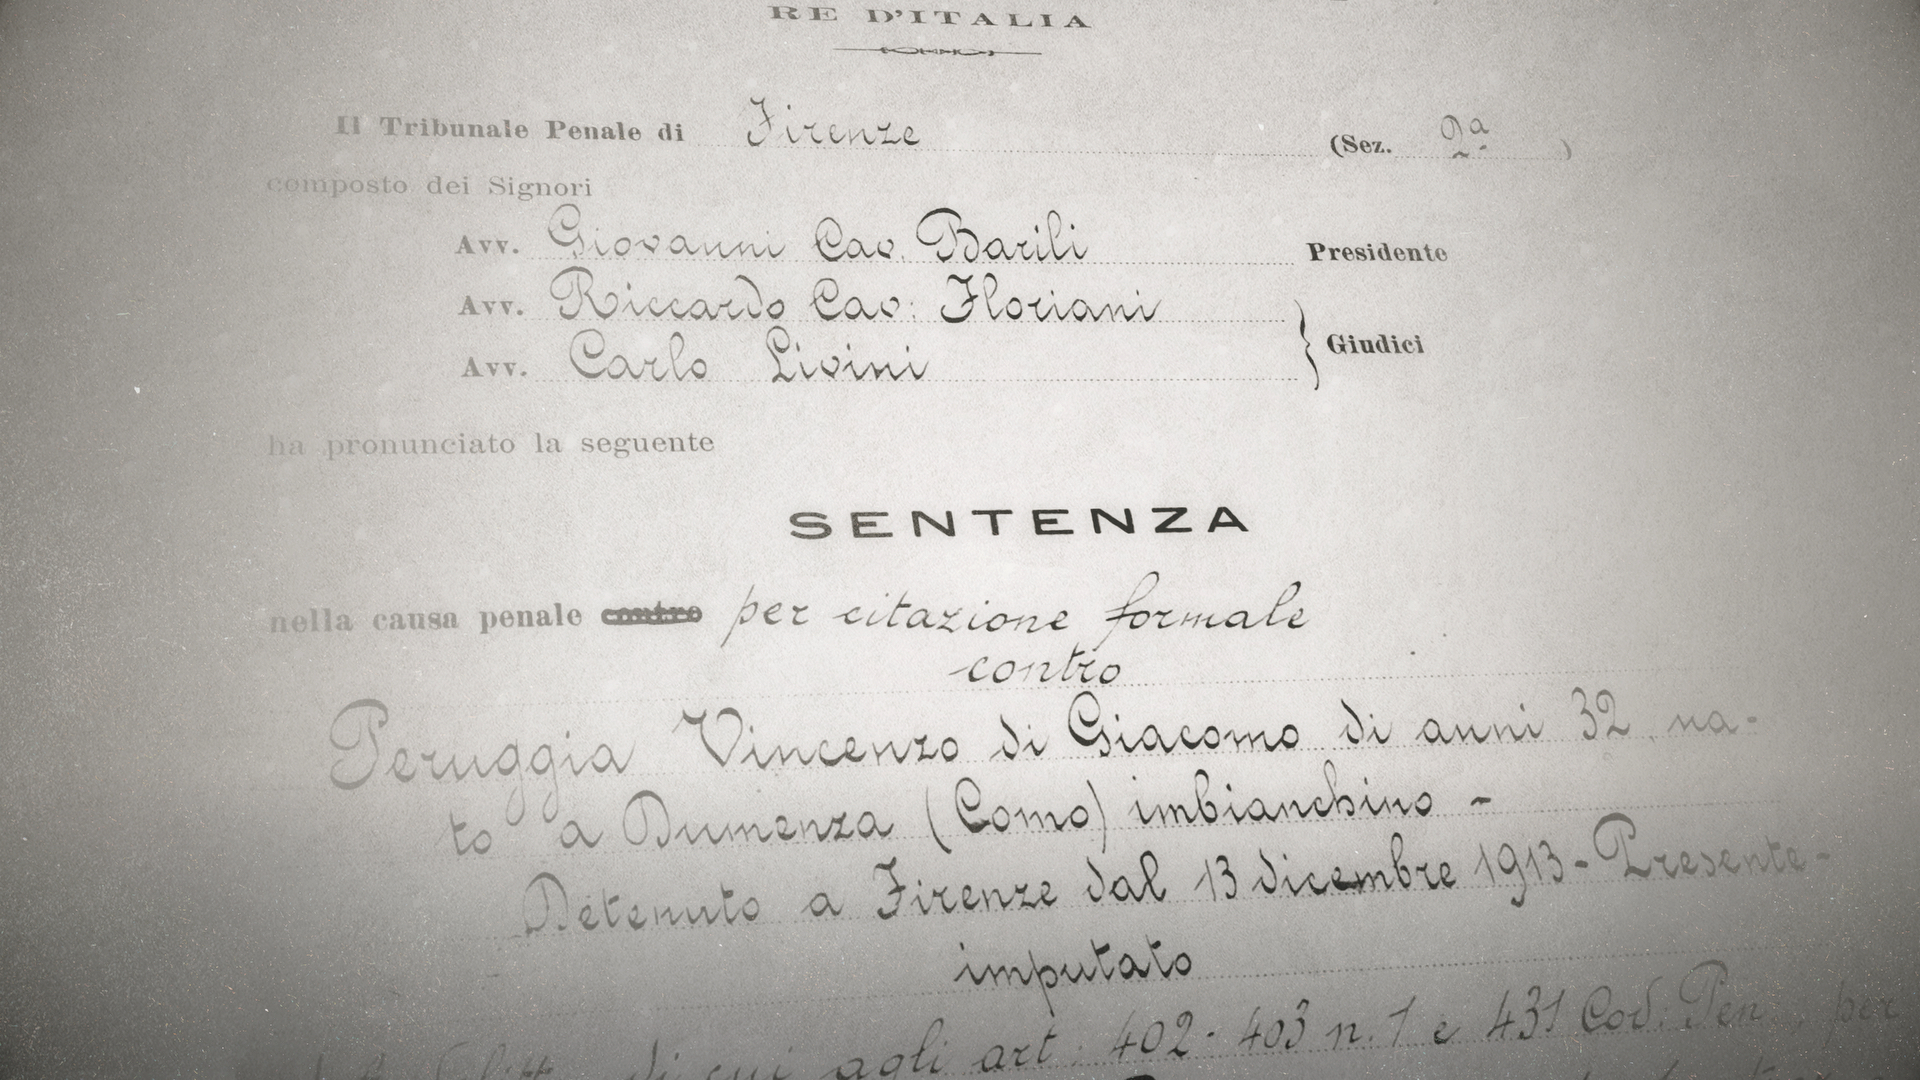 RE D'ITALIA
Il Tribunale Penale di Firenze (Sez. 2ª )
composto dei Signori
Avv. Giovanni Cav. Barili Presidente
Avv. Riccardo Cav: Floriani
Giudici
Avv. Carlo Livini
ha pronunciato la seguente
SENTENZA
nella causa penale contro per citazione formale
contro
Peruggia Vincenzo di Giacomo di anni 32, na-
to a Dumenza (Como) imbianchino -
Detenuto a Firenze dal 13 dicembre 1913 - Presente -
imputato
di cui agli art. 402 - 403 n. 1 e 431 Cod. Pen., per